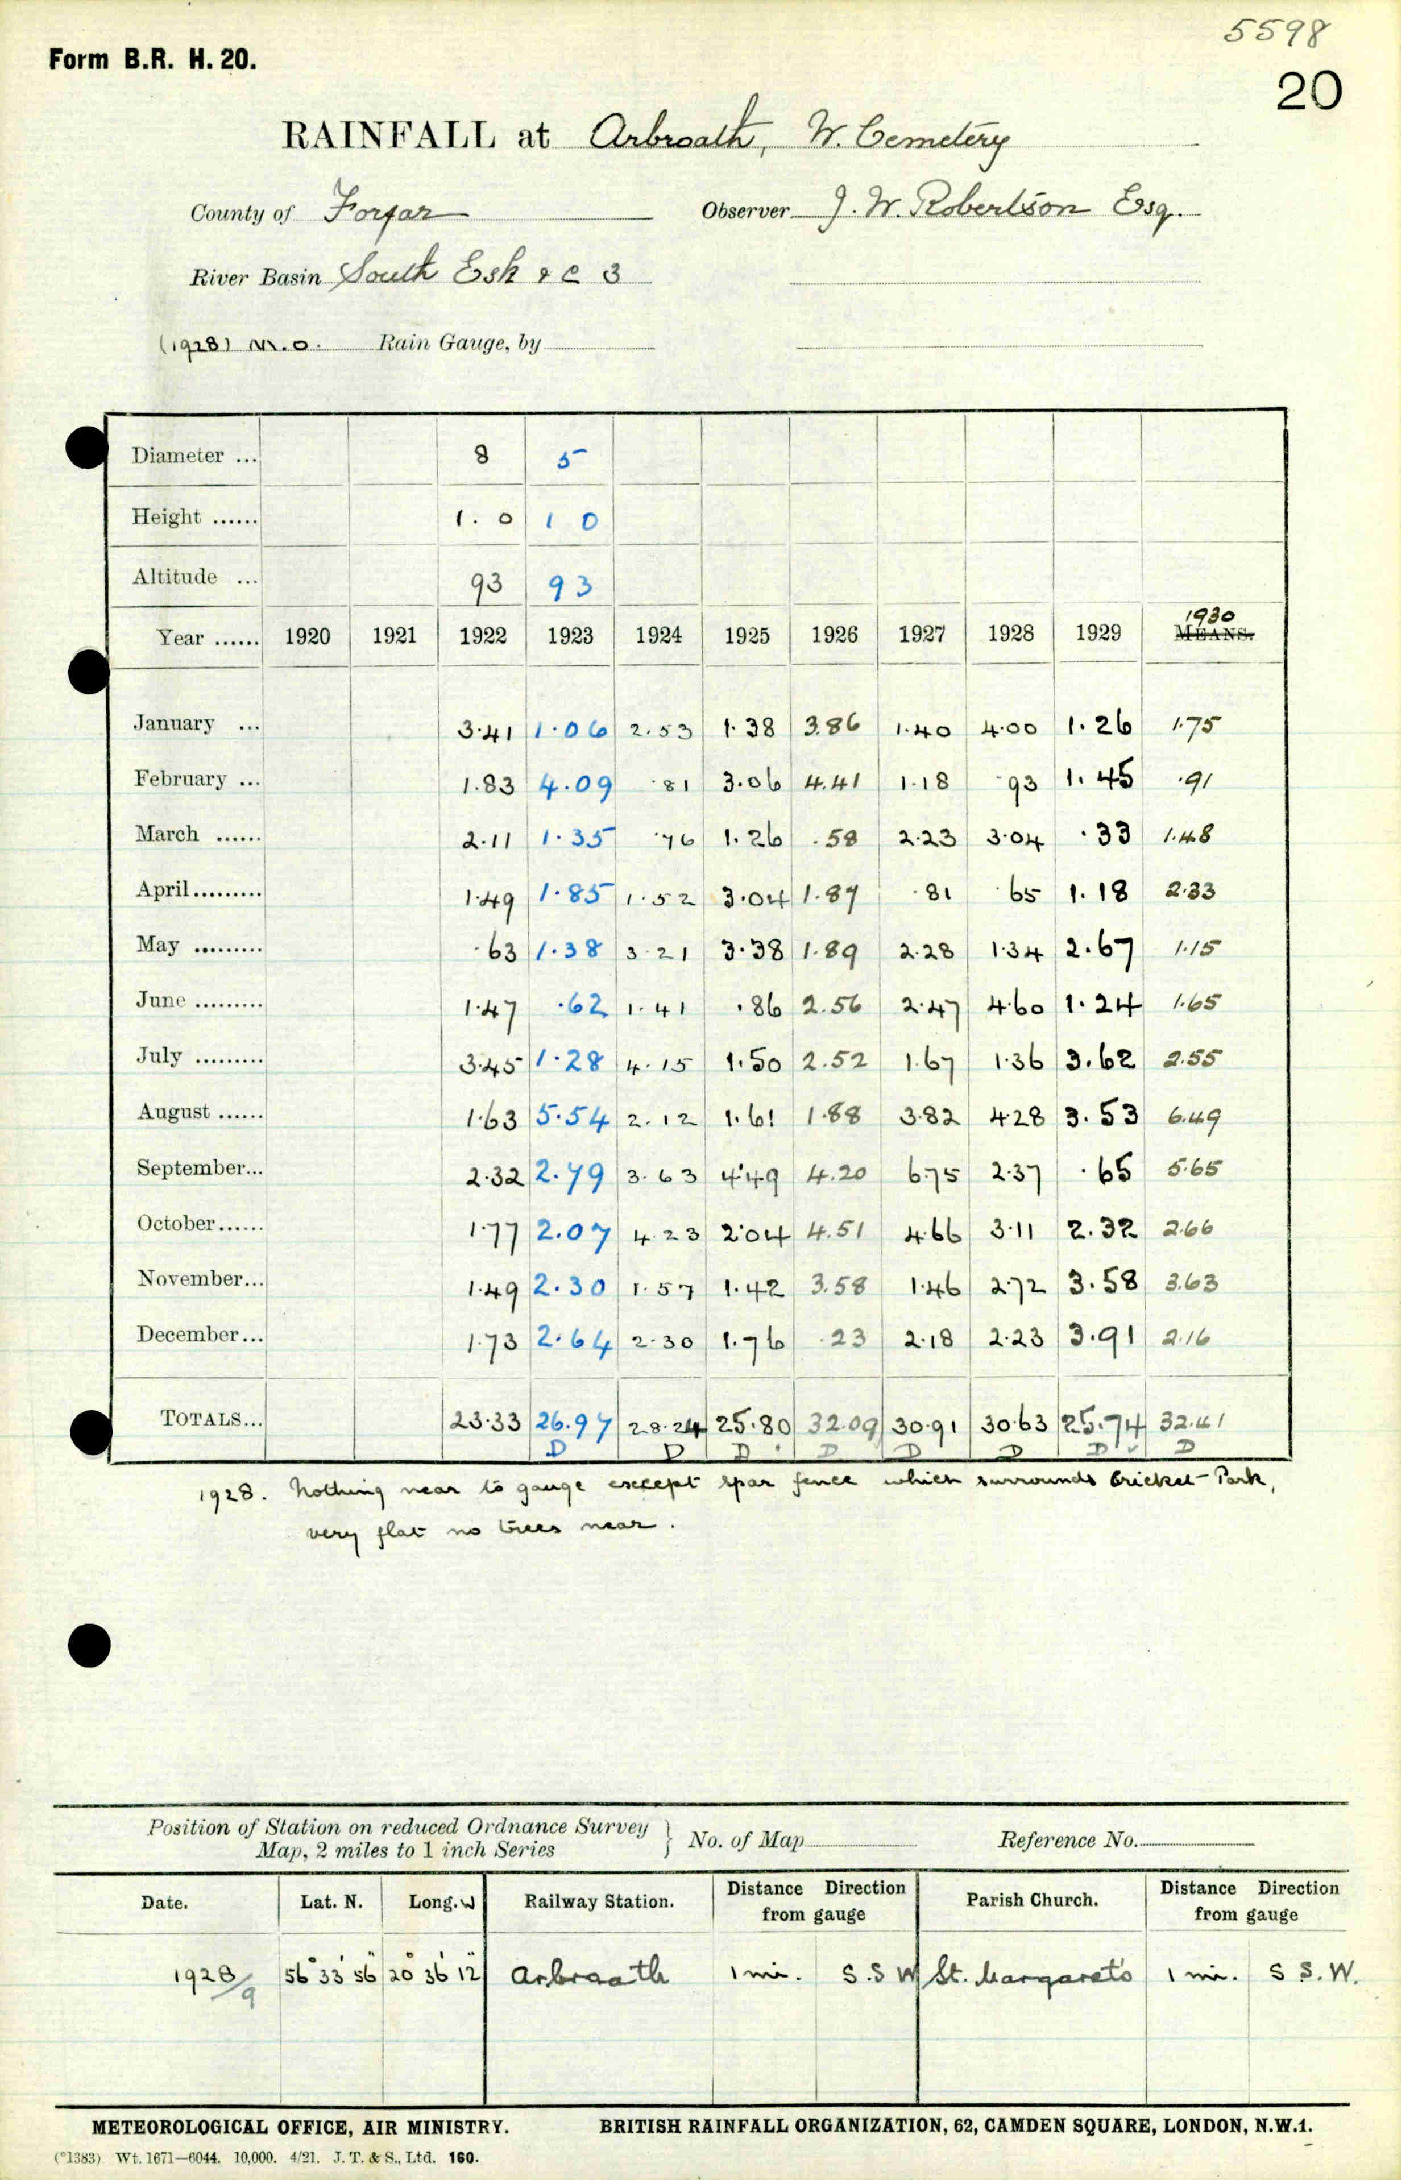 5598
Form B.R. H. 20.
20
RAINFALL at Arbroath, W. Cemetery
County of Forfar Observer J. W. Robertson Esq.
River Basin South Esk & c 3
(1928) M.O. Rain Gauge, by
Diameter ... 8 5
Height ...... 1. 0 1 0
Altitude ... 93 93
1930
Year ...... 1920 1921 1922 1923 1924 1925 1926 1927 1928 1929 MEANS.
January ... 3.41 1.06 2.53 1.38 3.86 1.40 4.00 1.26 1.75
February ... 1.83 4.09 .81 3.06 4.41 1.18 .93 1.45 .91
March ...... 2.11 1.35 .76 1.26 .58 2.23 3.04 .33 1.48
April......... 1.49 1.85 1.52 3.04 1.87 .81 .65 1.18 2.33
May ......... .63 1.38 3.21 3.38 1.89 2.28 1.34 2.67 1.15
June ......... 1.47 .62 1.41 .86 2.56 2.47 4.60 1.24 1.65
July ......... 3.45 1.28 4.15 1.50 2.52 1.67 1.36 3.62 2.55
August ...... 1.63 5.54 2.12 1.61 1.88 3.82 4.28 3.53 6.49
September... 2.32 2.79 3.63 4.49 4.20 6.75 2.37 .65 5.65
October...... 1.77 2.07 4.23 2.04 4.51 4.66 3.11 2.32 2.66
November... 1.49 2.30 1.57 1.42 3.58 1.46 2.72 3.58 3.63
December... 1.73 2.64 2.30 1.76 .23 2.18 2.23 3.91 2.16
TOTALS... 23.33 26.97 28.24 25.80 32.09 30.91 30.63 25.74 32.41
D D D D D D D ✓ D
1928. Nothing near to gauge except spar fence which surrounds Cricket-Park,
very flat no trees near.
Position of Station on reduced Ordnance Survey
Map, 2 miles to 1 inch Series } No. of Map Reference No.
Date. Lat. N. Long. W Railway Station. Distance Direction from gauge Parish Church. Distance Direction from gauge
1928/9 56° 33' 56" 20° 36' 12" Arbroath 1 mi. S.S W St. Margaret's 1 mi. S S. W.
METEOROLOGICAL OFFICE, AIR MINISTRY. BRITISH RAINFALL ORGANIZATION, 62, CAMDEN SQUARE, LONDON, N.W.1.
(*1383) Wt. 1671—6044. 10,000. 4/21. J. T. & S., Ltd. 160.